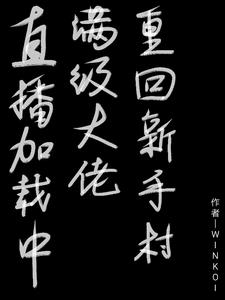 重回新手村
满级大佬
直播加载中
作者｜WINKOI